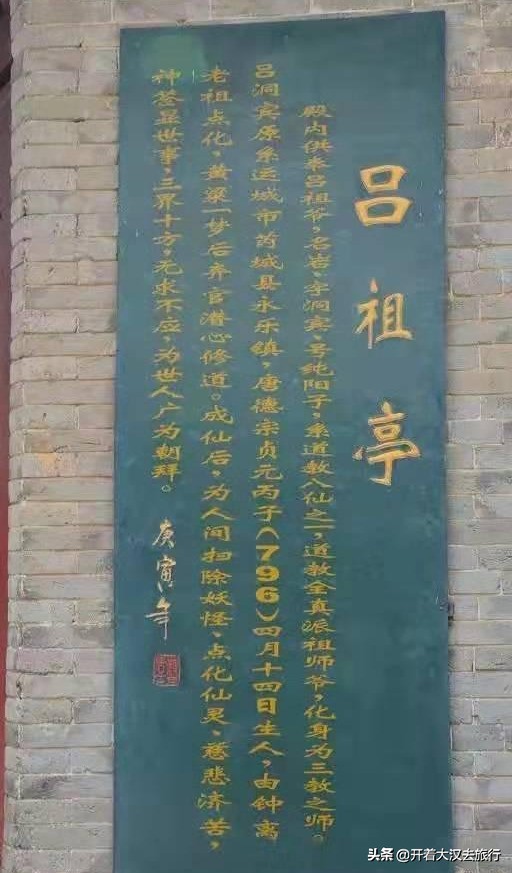 吕祖亭
殿内供奉吕祖爷，名岩，字洞宾，号纯阳子，系道教八仙之一，道教全真派祖师爷，化身为三教之师。
吕洞宾原系运城市芮城县永乐镇，唐德宗贞元丙子（796）四月十四日生人，由钟离
老祖点化，黄粱一梦后弃官潜心修道。成仙后，为人间扫除妖怪、点化仙灵、慈悲济苦，
神签显世事，三界十方，无求不应，为世人广为朝拜。
庚寅年
头条 @开着大汉去旅行